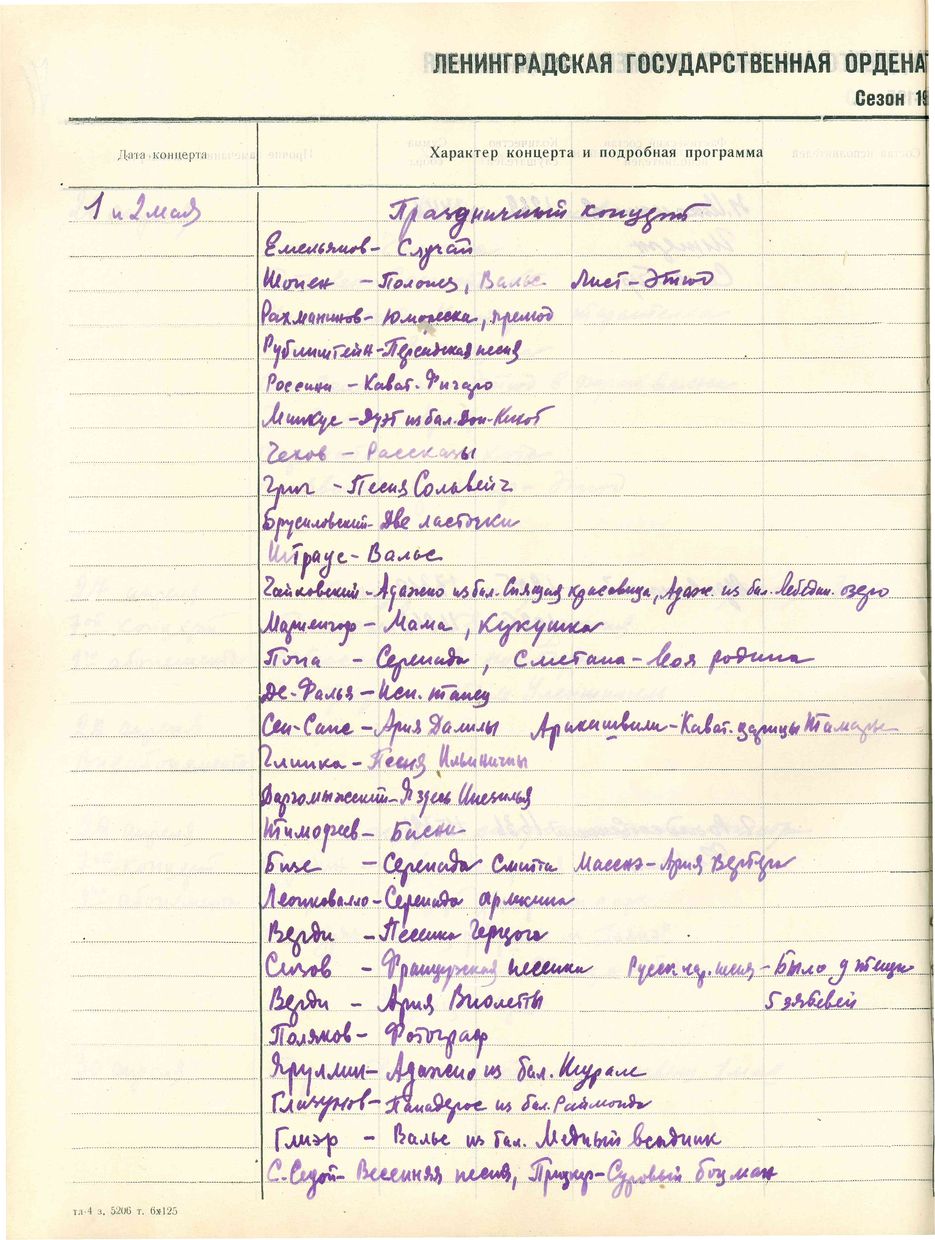 ЛЕНИНГРАДСКАЯ ГОСУДАРСТВЕННАЯ ОРДЕНА
Сезон 19
Дата концерта
Характер концерта и подробная программа
1 и 2 мая Праздничный концерт
Емельянов - Случай
Шопен - Полонез, Вальс Лист - Этюд
Рахманинов - Юмореска, прелюд
Рубинштейн - Персидская песня
Россини - Кават. Фигаро
Минкус - Дуэт из бал. Дон-Кихот
Чехов - Рассказы
Григ - Песня Сольвейг
Брусиловский - Две ласточки
Штраус - Вальс
Чайковский - Адажио из бал. Спящая красавица, Адаж. из бал. Лебедин. озеро
Мариенгоф - Мама, Кукушка
Поппа - Серенада, Сметана - Моя родина
Де-Фалья - Исп. танец
Сен-Санс - Ария Далилы Аракишвили - Кават. царицы Тамары
Глинка - Песня Ильиничны
Даргомыжский - Я здесь Инезилья
Тимофеев - Басни
Бизе - Серенада Смита Массне - Ария Вертера
Леонковалло - Серенада Арлекина
Верди - Песенка Герцога
Сизов - Французская песенка Русск. нар. песня - Было у тещи
Верди - Ария Виолетты 5 зятьевей
Поляков - Фотограф
Яруллин - Адажио из бал. Шурале
Глазунов - Панадерос из бал. Раймонда
Глиэр - Вальс из бал. Медный всадник
С. Седой - Весенняя песня, Прицкер - Суровый боцман
тл-4 з. 5206 т. 6х125